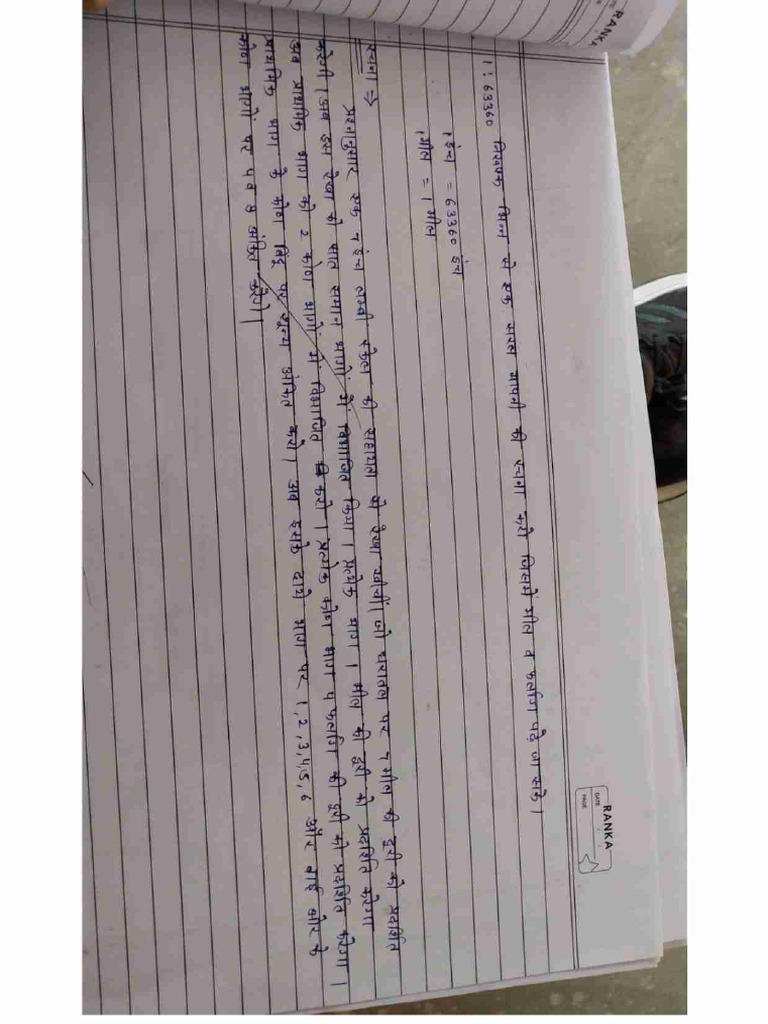 RANKA
DATE / /
PAGE
RANKA
1 : 63360 निरूपक भिन्न से एक सरल मापनी की रचना करो जिसमें मील व फर्लांग पढ़े जा सके।
1 इंच = 63360 इंच
1 मील = 1 मील
रचना ⇒
प्रश्नानुसार एक 7 इंच लम्बी स्केल की सहायता से रेखा खींचीं जो धरातल पर 7 मील की दूरी को प्रदर्शित
करेगी। अब इस रेखा को सात समान भागों में विभाजित किया। प्रत्येक भाग 1 मील की दूरी को प्रदर्शित करेगा
अब प्राथमिक भाग को 2 गौण भागों में विभाजित करो। प्रत्येक गौण भाग 4 फर्लांग की दूरी को प्रदर्शित करेगा।
प्राथमिक भाग के गौण बिंदु पर शून्य अंकित करें। अब इसके दायें भाग पर 1, 2, 3, 4, 5, 6 और बाई ओर के
गौण भागों पर 4 व 8 अंकित करेंगे।